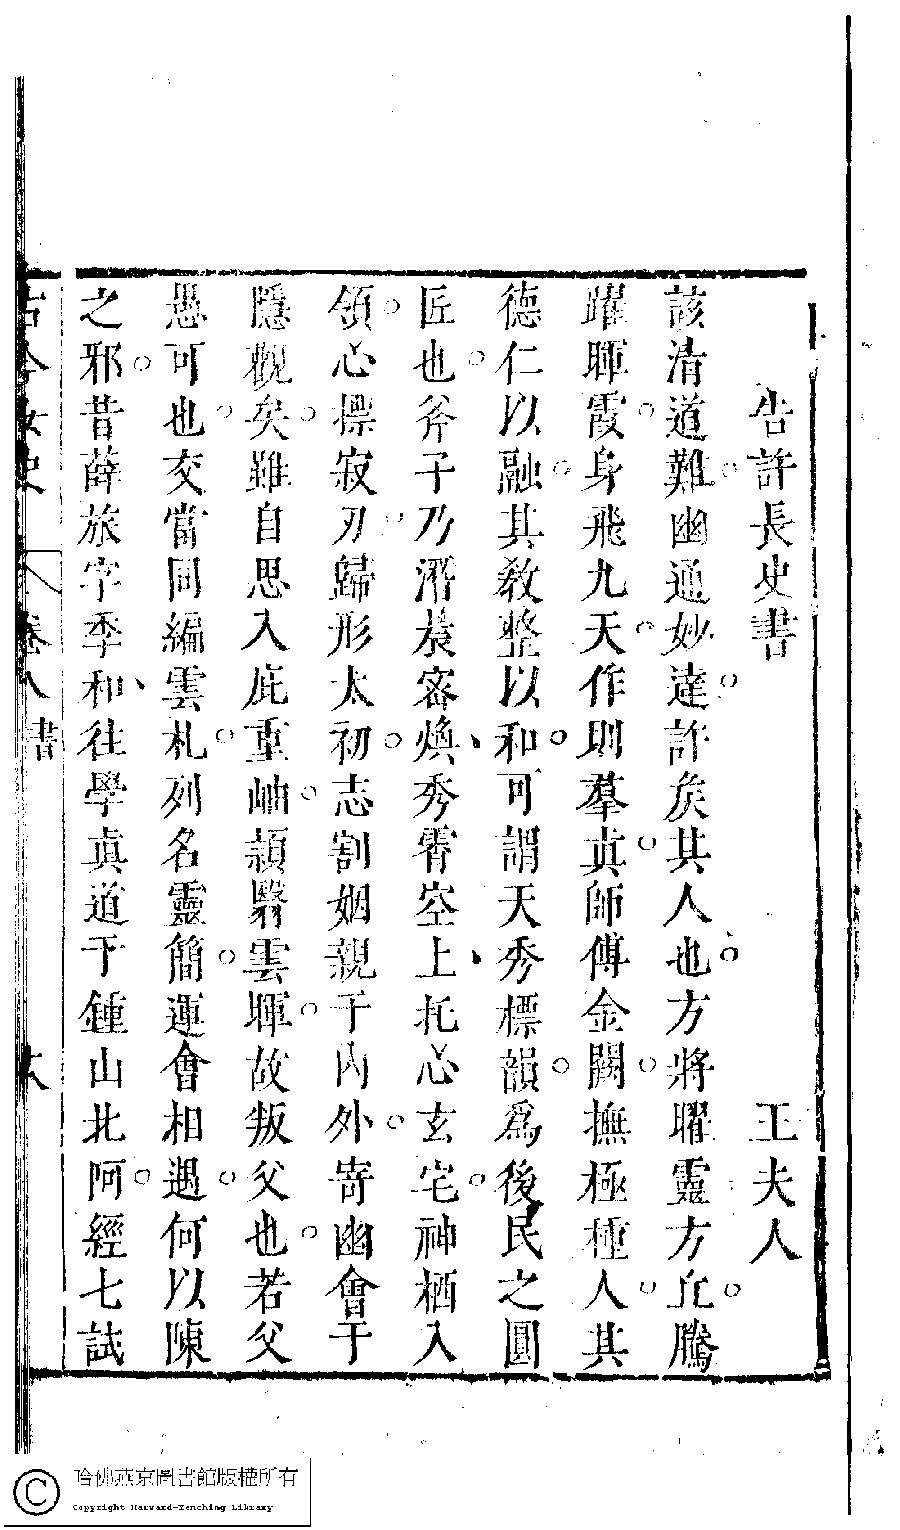 告許長史書　王夫人
該清道難幽通妙達許矦其人也方將曜靈方丘騰
躍暉霞身飛九天作則羣眞師傅金闕撫極種人其
德仁以融其敎整以和可謂天秀標韻爲後民之圓
匠也斧子乃潛晨審煥秀霄空上托心玄宅神栖入
領心標寂刃歸形太初志割姻親于内外寄幽會于
隱觀矣雖自思入庇重岫頴翳雲暉故叛父也若父
愚可也交當同編雲札列名靈簡運會相遇何以陳
之邪昔薛旅字季和往學眞道于鍾山北阿經七試
古今女史　卷八書
哈佛燕京圖書館版權所有
Copyright Harvard-Yenching Library